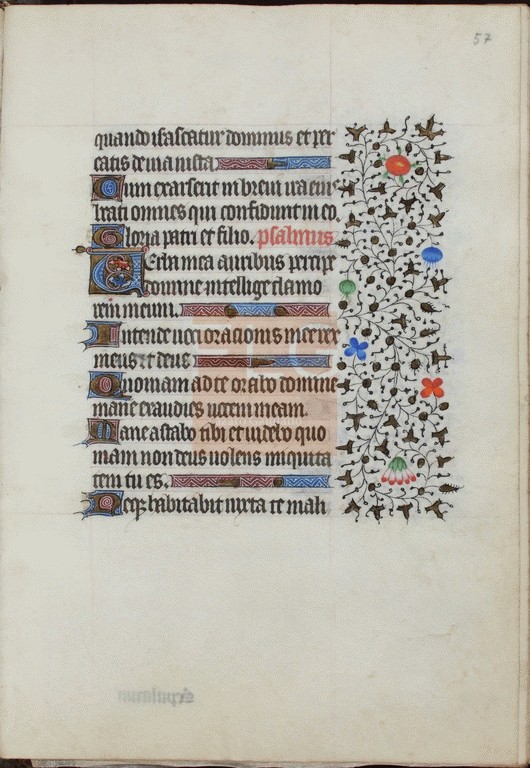 57
quando irascatur dominus et per
eatis de via iusta
Cum exarserit in brevi ira eius
beati omnes qui confidunt in eo.
Gloria patri et filio. psalmus
Verba mea auribus percipe
domine intellige clamo
rem meum.
Intende voci oracionis mee rex
meus et deus
Quoniam ad te orabo domine
mane exaudies vocem meam.
Mane astabo tibi et videbo quo
niam non deus volens iniquita
tem tu es.
Neque habitabit iuxta te mali